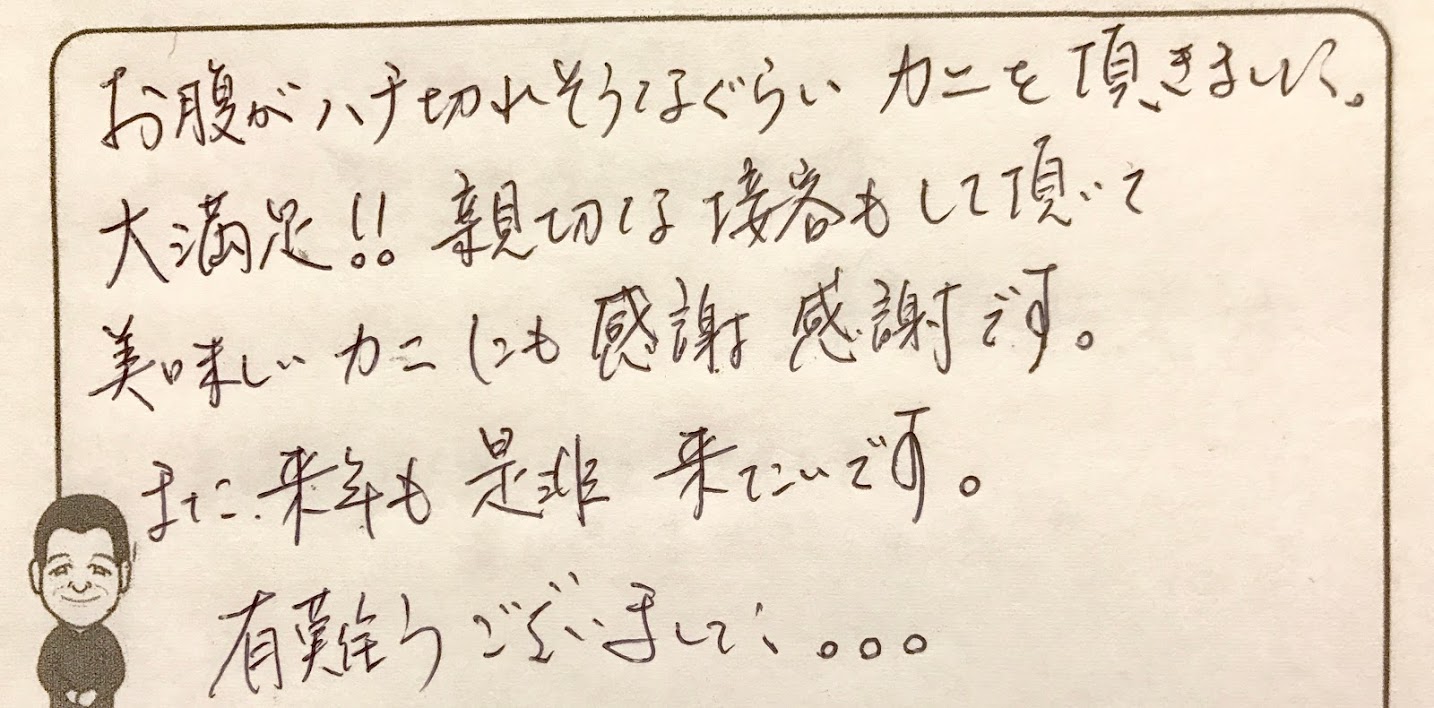 お腹がハチ切れそうなぐらい カニを頂きました。
大満足!! 親切な接客もして頂いて
美味しいカニにも感謝感謝です。
また来年も是非来たいです。
有難うございました。。。